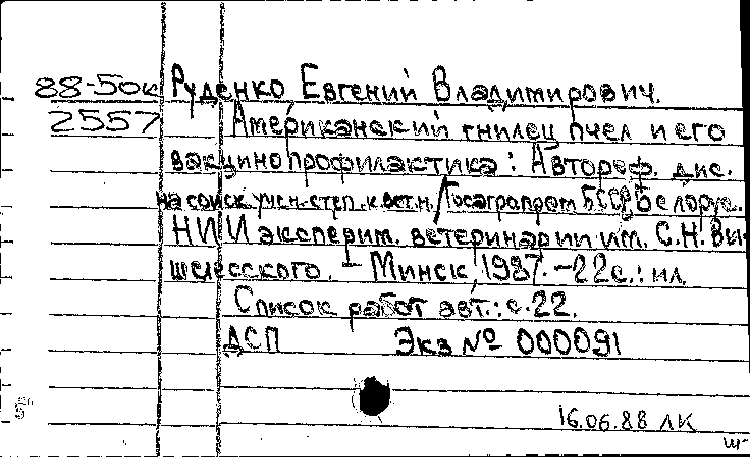 88-50к Руденко Евгений Владимирович.
2557 Американский гнилец пчел и его
вакцинопрофилактика: Автореф. дис.
на соиск. учен. степ. к.вет.н./Госагропром БССР, Белорус.
НИИ эксперим. ветеринарии им. С.Н. Вы-
шелесского. - Минск, 1987. -22с.: ил.
Список работ авт.: с.22.
ДСП Экз № 000091
16.06.88 ЛК